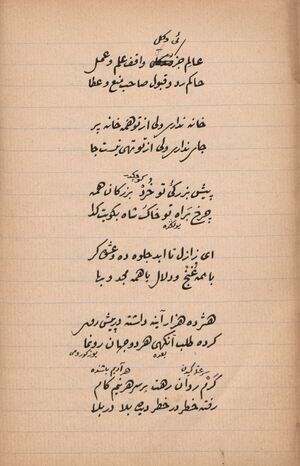 ئی و کل
عالم جز واقف علم و عمل
حاکم رد و قبول صاحب منع و عطا
خانه نداری ولی از تو همه خانه پر
جای نداری ولی از تو تهی نیست جا
کوچک
پیش بزرگی تو خُرد بزرگان همه
چرخ براه تو خاک شاه بکویت گدا
ای ز ازل تا ابد جلوه ده عشق گر
با همه غُنج و دلال با همه مجد و بها
هژده هزار آینه داشته در پیش روی
کرده طلب آنگهی هر دو جهان رونما
گرم روان رهت بر سر هر نیم گام
رفته خطر در خطر دیده بلا در بلا